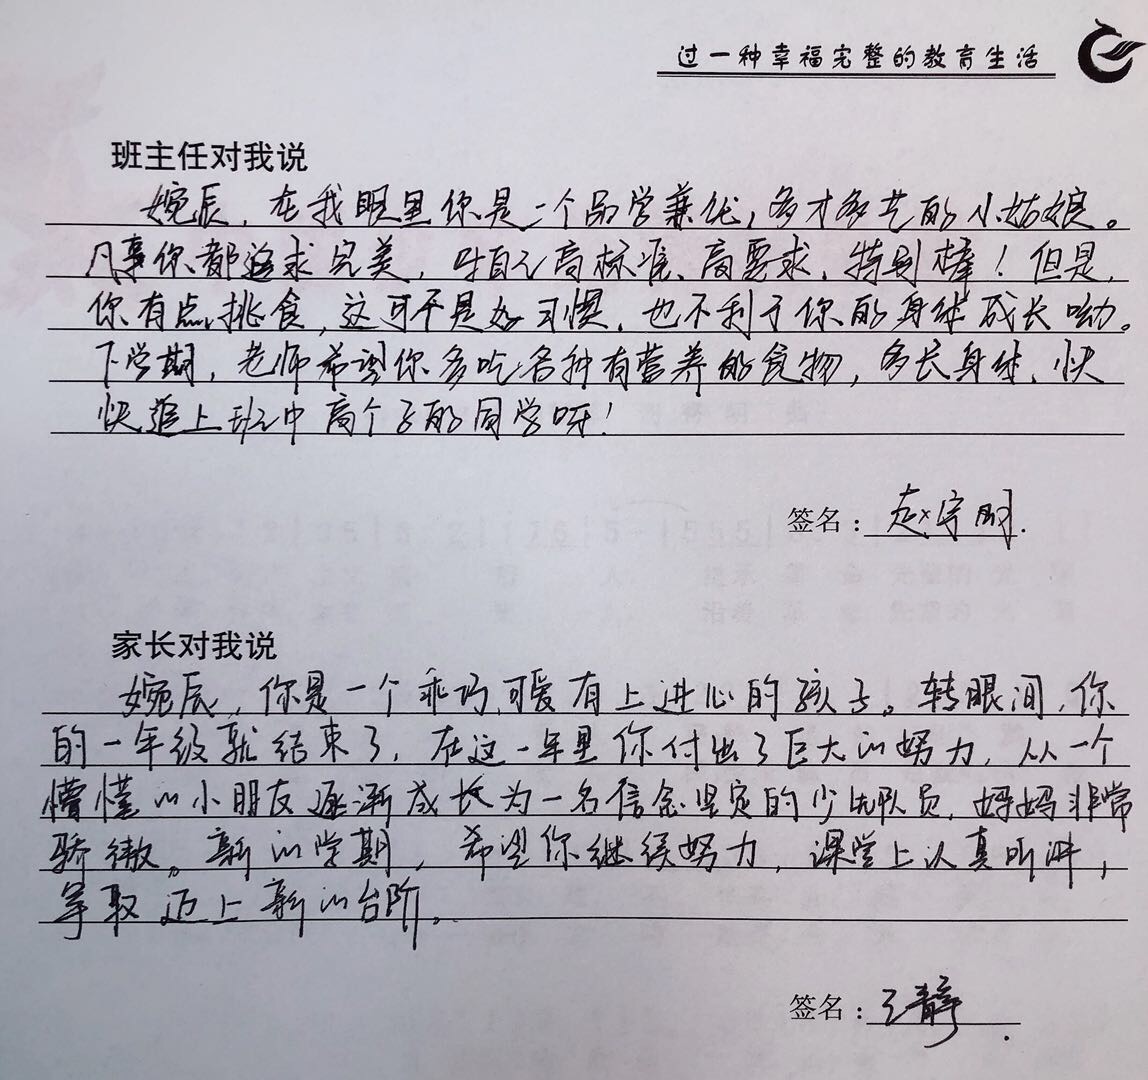 过一种幸福完整的教育生活
班主任对我说
婉辰，在我眼里你是一个品学兼优，多才多艺的小姑娘。
凡事你都追求完美，对自己高标准、高要求，特别棒！但是，
你有点挑食，这可不是好习惯，也不利于你的身体成长呦。
下学期，老师希望你多吃各种有营养的食物，多长身体，快
快追上班中高个子的同学呀！
签名：赵宇明
家长对我说
婉辰，你是一个乖巧、可爱有上进心的孩子。转眼间，你
的一年级就结束了，在这一年里你付出了巨大的努力，从一个
懵懂的小朋友逐渐成长为一名信念坚定的少先队员，妈妈非常
骄傲。新的学期，希望你继续努力，课堂上认真听讲，
争取迈上新的台阶。
签名：王静